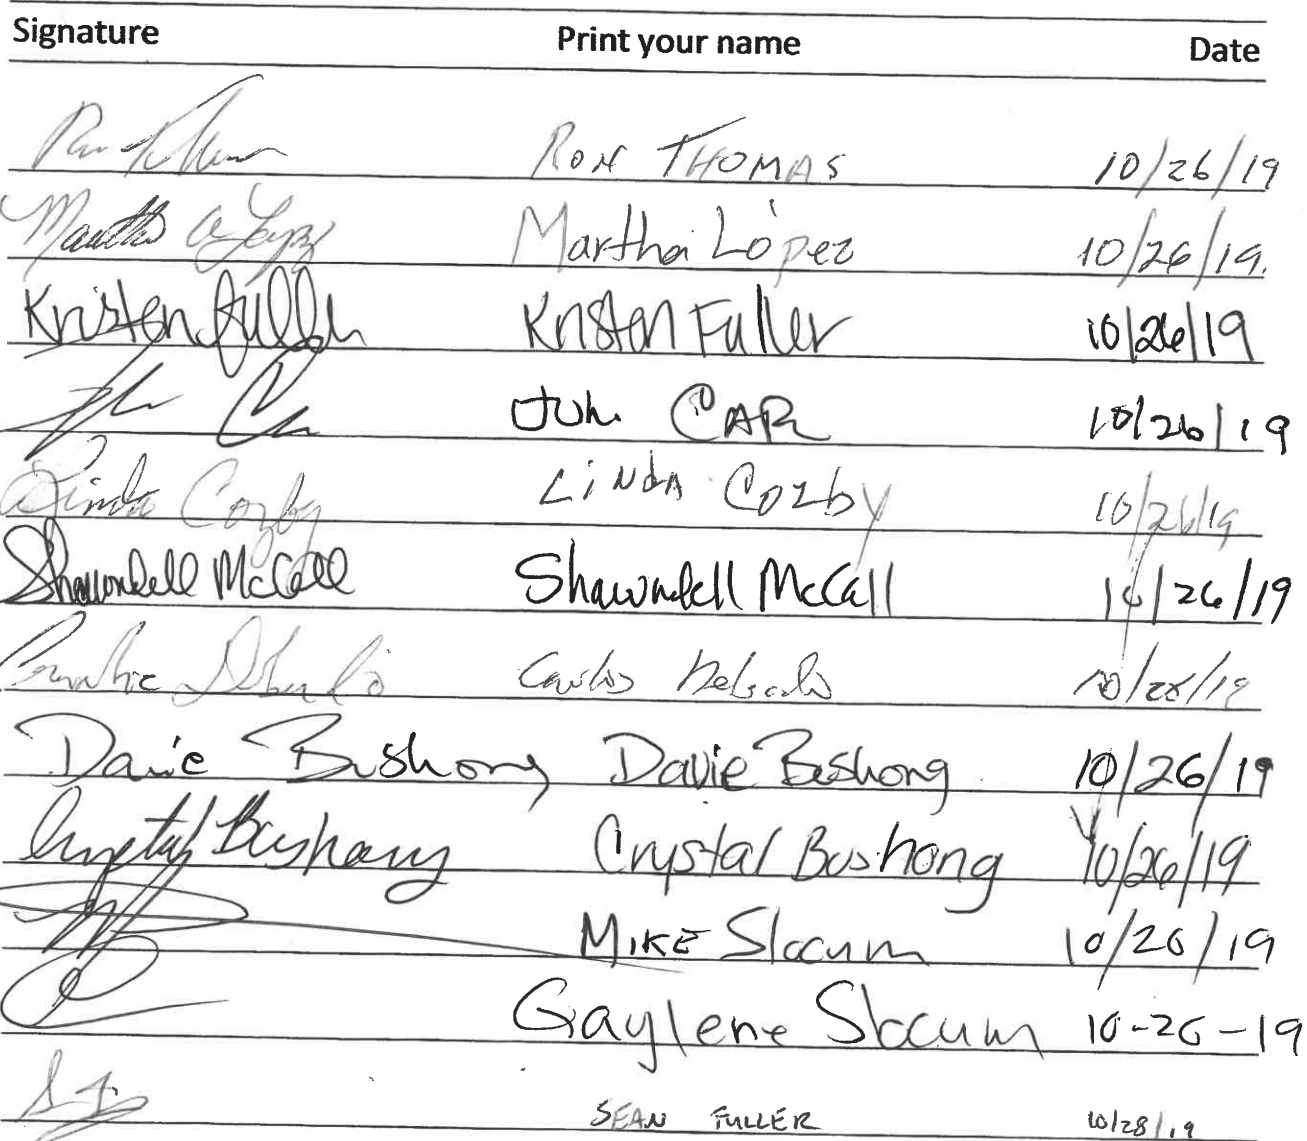 Signature Print your name Date
RON THOMAS 10/26/19
Martha López 10/26/19
Kristen Fuller Kristen Fuller 10/26/19
CAR 10/26/19
Linda Cozby LiNdA Cozby 10/26/19
Shawndell McCall Shawndell McCall 10/26/19
Carlos Delgado
Davie Bushong Davie Bushong 10/26/19
Crystal Bushong Crystal Bushong 10/26/19
MIKE Slocum 10/26/19
Gaylene Slocum 10-26-19
SEAN FULLER 10/28/19